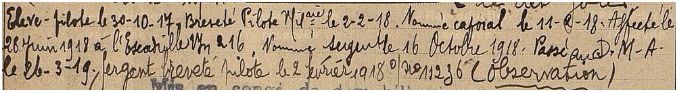 Elève-pilote le 30-10-17, Breveté Pilote Mil^aire le 2-2-18. Nommé caporal le 11-8-18. Affecté le
28 Juin 1918 à l'Escadrille Vn 216. Nommé sergent le 16 Octobre 1918. Passé au D.M.A.
le 26-3-19. Sergent breveté pilote le 2 février 1918 n° 11236 (Observation)
Mis en congé de